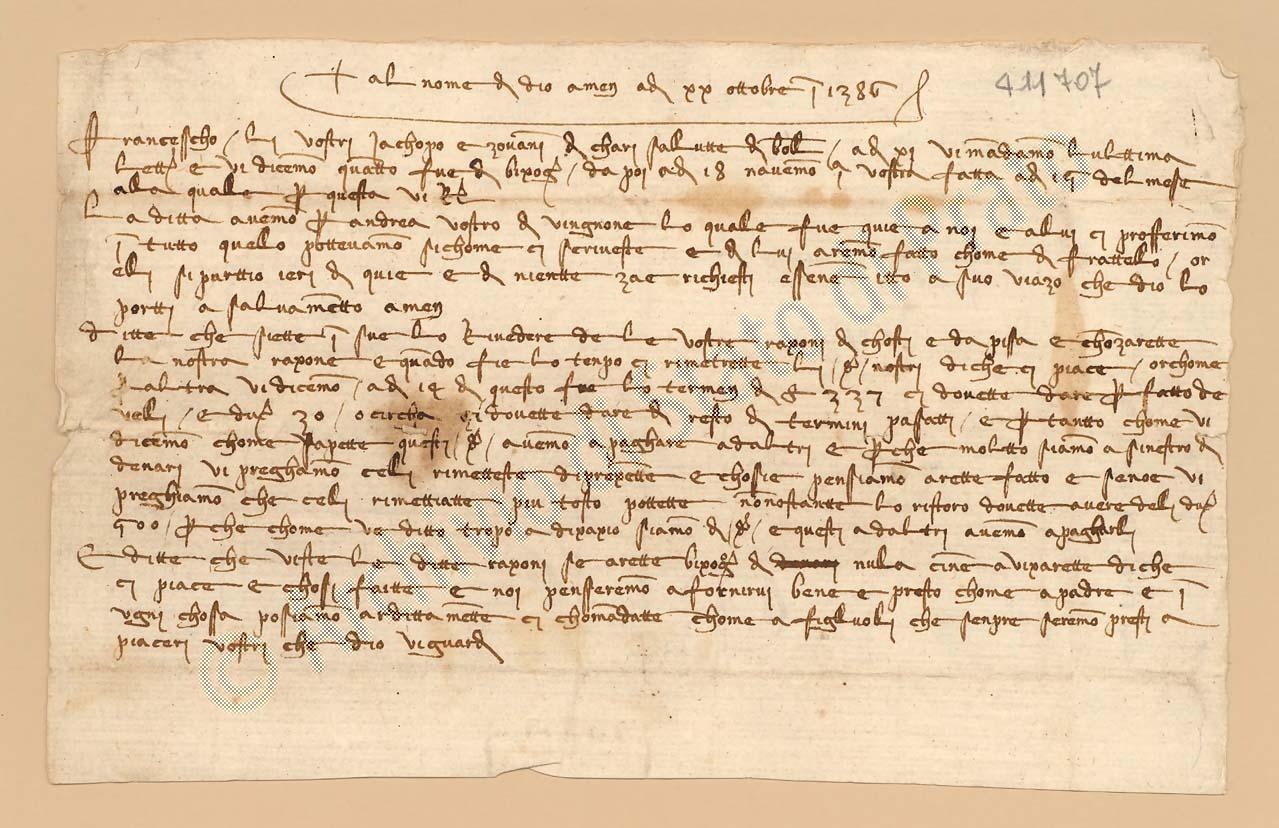 + al nome de dio amen adì xx ottobre ĩ 1386
411707
Francesscho, li vostri Jachopo e zovanj de chari sallutte de bol. adì xj vi mãdamõ l'ulttima
letta e vi dicemo quatto fue de bixog. da poi adì 18 navemo vostra fatta adì del mese
ala qualle p questa vi
La ditta avemo p andrea vostro de vingnone lo qualle fue quie a noi e a lui ci profferimo
ĩ tutto quello pottevamo sichome ci scriveste e de lui aremo fatto chome de frattello, or
elli si parttio ieri de quie e de nientte zae richiesti essene itto a suo viazo che dio lo
portti a salvamẽtto amen
ditte che siette ĩ sue lo rivedere de le vostre raxonj de chosti e da pissa e chõzarette
la nostra raxone e quãdo fie lo tenpo ci rimetrette li nostri diche ci piace, or chome
p altra vi dicemo, adì de questo fue lo termen de ci dovette dare p fatto de
velli, e du. 30, o circha ci dovette dare de resto de terminj passatti, e p tantto chome vi
dicemo chome sapette questi avemo a paghare ad altri e p che moltto siamo a sinestro de
denari vi preghamo celi rimetteste di prexette e chosie pensiamo arette fatto e se noe vi
preghiamo che celi rimettiatte piu tosto pottette nonostantte lo ristoro dovette avere deli du.
500, p che chome ve ditto tropo a dixaxio siamo de e questi ad altri avemo a pagharli
E ditte che viste le ditte raxonj se arette bixog. de nulla cinne avixarette diche
ci piace e chosi faitte e noi penseremo a fornirvi bene e presto chome a padre e ĩ
ugni chossa posiamo ardittamẽtte ci chomãdatte chome a figliuoli che senpre seremo presti a
piaceri vostri che dio vi guardi